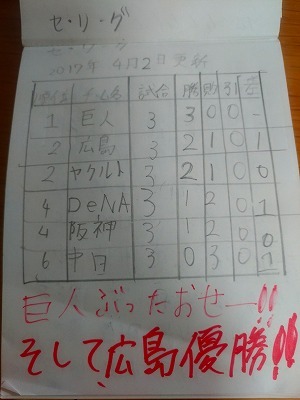 セ・リーグ
セ・リーグ
2017年 4月2日更新
順位 チーム名 試合 勝 敗 引 差
1 巨人 3 3 0 0 -
2 広島 3 2 1 0 1
2 ヤクルト 3 2 1 0 0
4 DeNA 3 1 2 0 1
4 阪神 3 1 2 0 0
6 中日 3 0 3 0 1
巨人ぶったおせー!!
そして広島優勝!!